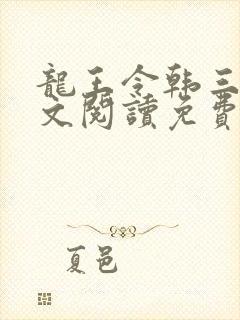 龍王令韩三
文閱讀免費
夏邑